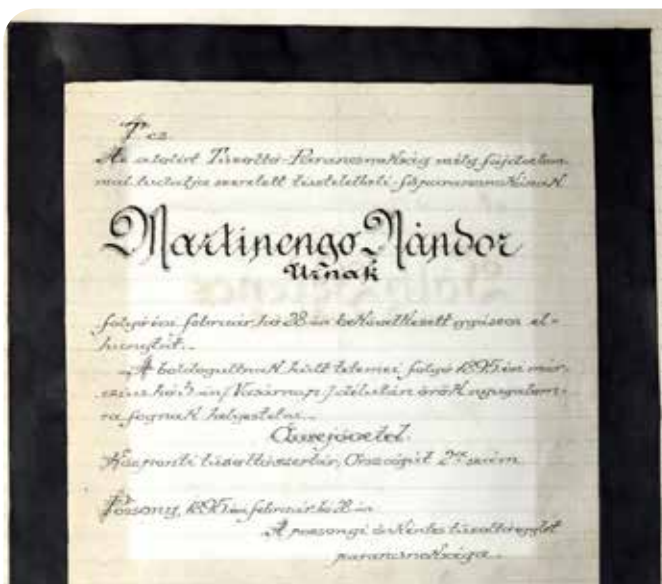 T. cz.
Az alolirt Tüzoltó-Parancsnokság mély fájdalom-
mal tudatja szeretett tiszteletbeli főparancsnokának
Martinengo Nándor
Urnak
folyó évi február hó 28-án bekövetkezett gyászos el-
hunytát.
A boldogultnak hült tetemei folyó 1895 évi már-
czius hó 3-án (Vasárnap) délután örök nyugalom-
ra fognak helyeztetni.
Összejövetel
Központi tüzoltószertár, Országút 2ik szám
Pozsony, 1895 évi február hó 28-án
A pozsonyi önkéntes tüzoltóegylet
parancsnoksága.